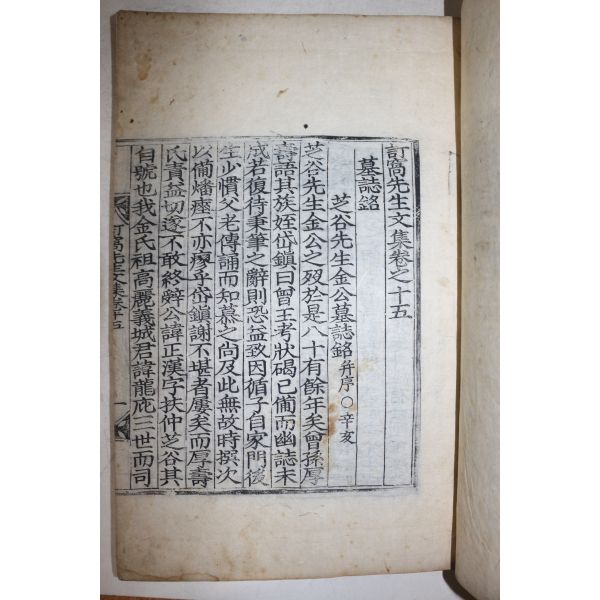 訂窩先生文集卷之十五
墓誌銘
芝谷先生金公墓誌銘 幷序○辛亥
芝谷先生金公之歿於是八十有餘年矣曾孫厚
壽語其族姪岱鎭曰曾王考狀碣已備而幽誌未
成若復待秉筆之辭則恐益致因循子自家門後
生少慣父老傳誦而知慕之尚及此無故時撰次
以備燔瘞不亦瘳乎岱鎭謝不堪者屢矣而厚壽
氏責益切遂不敢終辭公諱正漢字扶仲芝谷其
自號也我金氏祖高麗義城君諱龍庇三世而司
訂窩先生文集卷十五
一